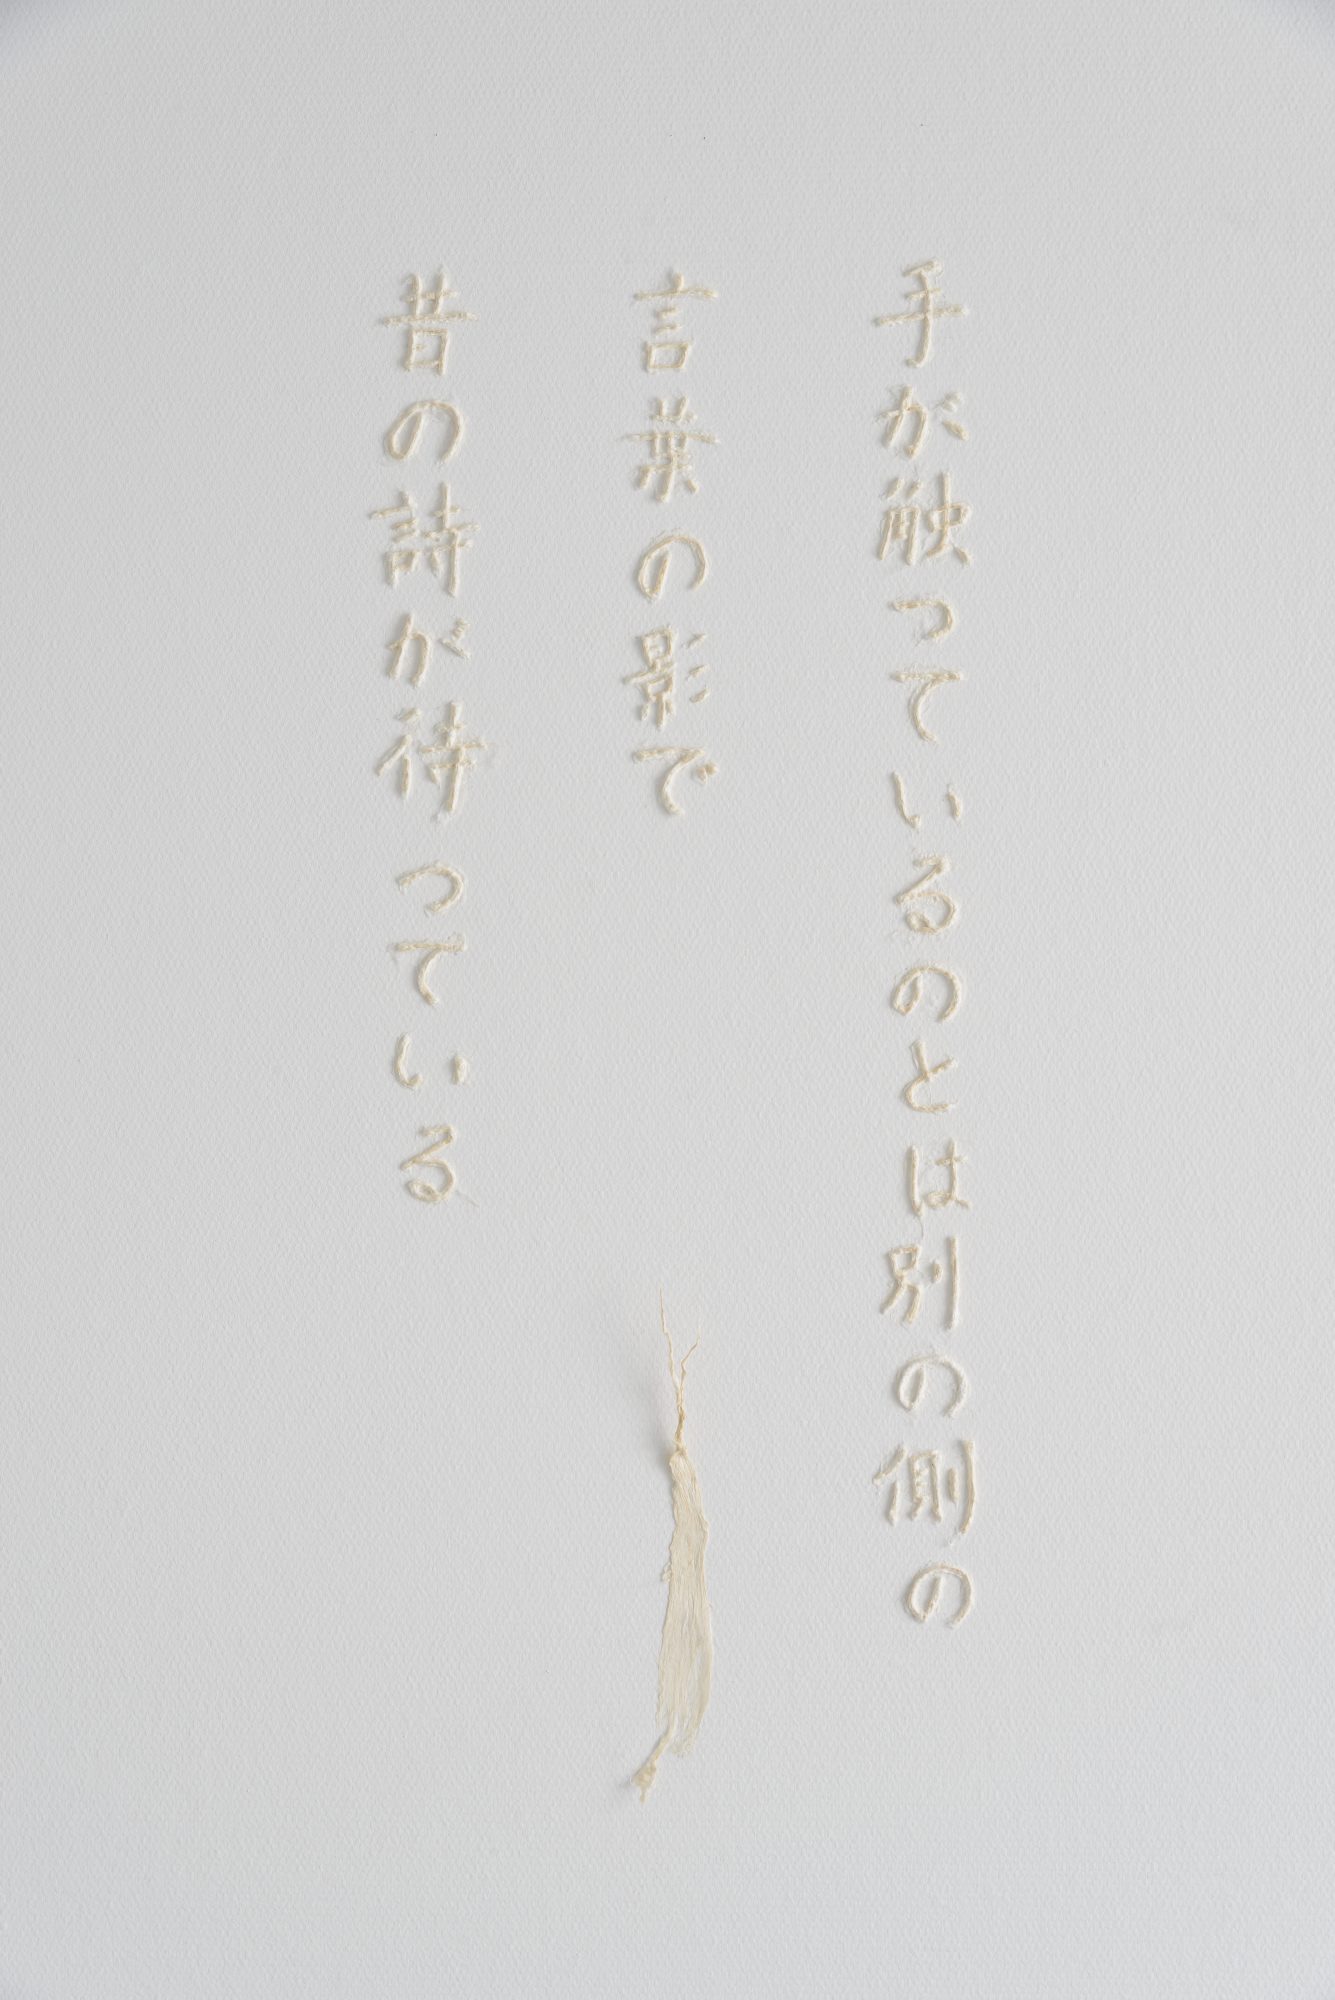 手が触っているのとは別の側の
言葉の影で
昔の詩が待っている